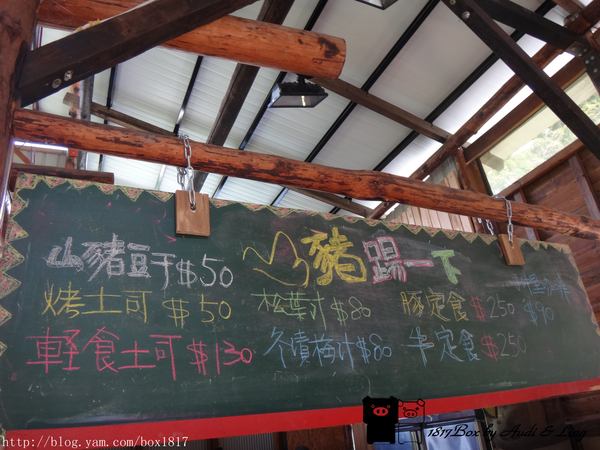 山豬踢一下
山豬豆干$50
烤土司 $50 松葉汁$80 豚定食$250 $90
輕食土司$130 冬漬梅汁$80 牛定食$250
1817Box by Audi & Ling
http://blog.yam.com/box1817